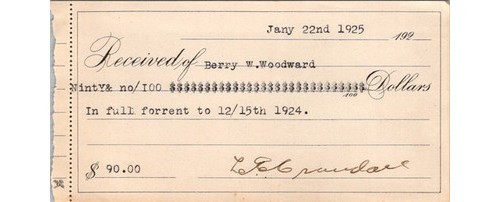 Jany 22nd 1925 192
Received of Berry W.Woodward
NintY& no/IOO $$$$$$$$$$$$$$$$$$$$$$$$$$$$ /100 Dollars
In full forrent to 12/15th 1924.
$ 90.00